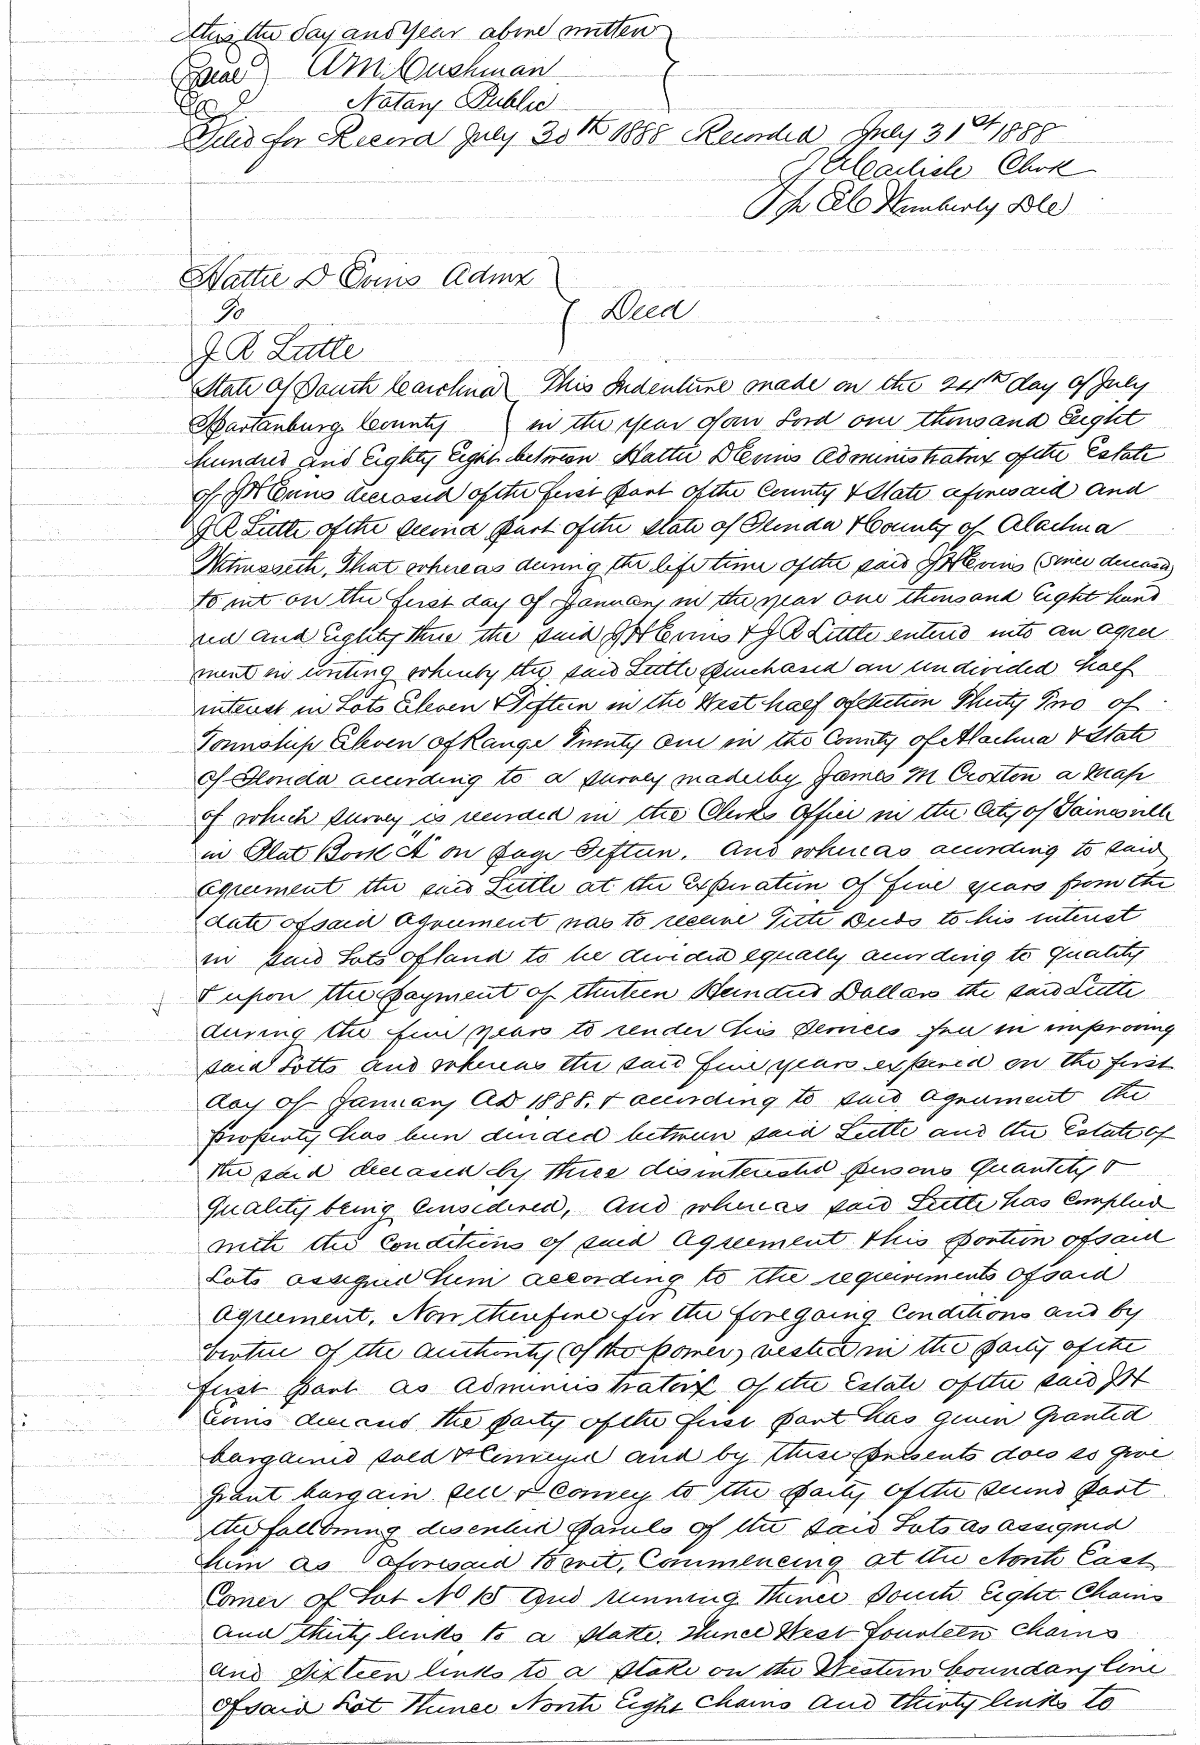 this the day and Year above written
(Seal) W M Cushman
Notary Public
Filed for Record July 30th 1888 Recorded July 31st 1888
Carlisle Clerk
Wimberly DC
Hattie D Evins Admx
To
Deed
J R Little
State of South Carolina This Indenture made on the 24th day of July
Spartanburg County in the year of our Lord one thousand Eight
hundred and Eighty Eight between Hattie D Evins Administratrix of the Estate
of J H Evins deceased of the first part of the County & State aforesaid and
J R Little of the second part of the State of Florida & County of Alachua
Witnesseth, That whereas during the life time of the said J H Evins (since deceased)
to wit on the first day of January in the year one thousand Eight hund
red and Eighty three the said J H Evins & J R Little entered into an agree
ment in writing whereby the said Little purchased an undivided half
interest in Lots Eleven & Fifteen in the West half of Section Thirty Two of
Township Eleven of Range Twenty One in the County of Alachua & State
of Florida according to a survey made by James M Croxton a map
of which survey is recorded in the Clerks Office in the City of Gainesville
in Plat Book "A" on page Fifteen. And whereas according to said
agreement the said Little at the Expiration of five years from the
date of said agreement was to receive Title Deeds to his interest
in said Lots of land to be divided equally according to quality
& upon the payment of thirteen Hundred Dollars the said Little
during the five years to render his services free in improving
said Lotts and whereas the said five years expired on the first
day of January AD 1888. & according to said agreement the
property has been divided between said Little and the Estate of
the said deceased by three disinterested persons Quantity &
Quality being Considered, And whereas said Little has Complied
with the Conditions of said Agreement this portion of said
Lots assigned him according to the requirements of said
Agreement. Now therefore for the foregoing Conditions and by
virtue of the authority (of the power) vested in the party of the
first part as Administratrix of the Estate of the said J H
Evins deceased the party of the first part has given Granted
bargained sold & Conveyed and by these presents does so give
grant bargain sell & Convey to the party of the second part
the following described parcels of the said Lots as assigned
him as aforesaid to wit, Commencing at the North East
Corner of Lot No 15 and running thence South Eight Chains
and thirty links to a stake. Thence West Fourteen chains
and Sixteen links to a stake on the Western boundary line
of said Lot Thence North Eight chains and thirty links to